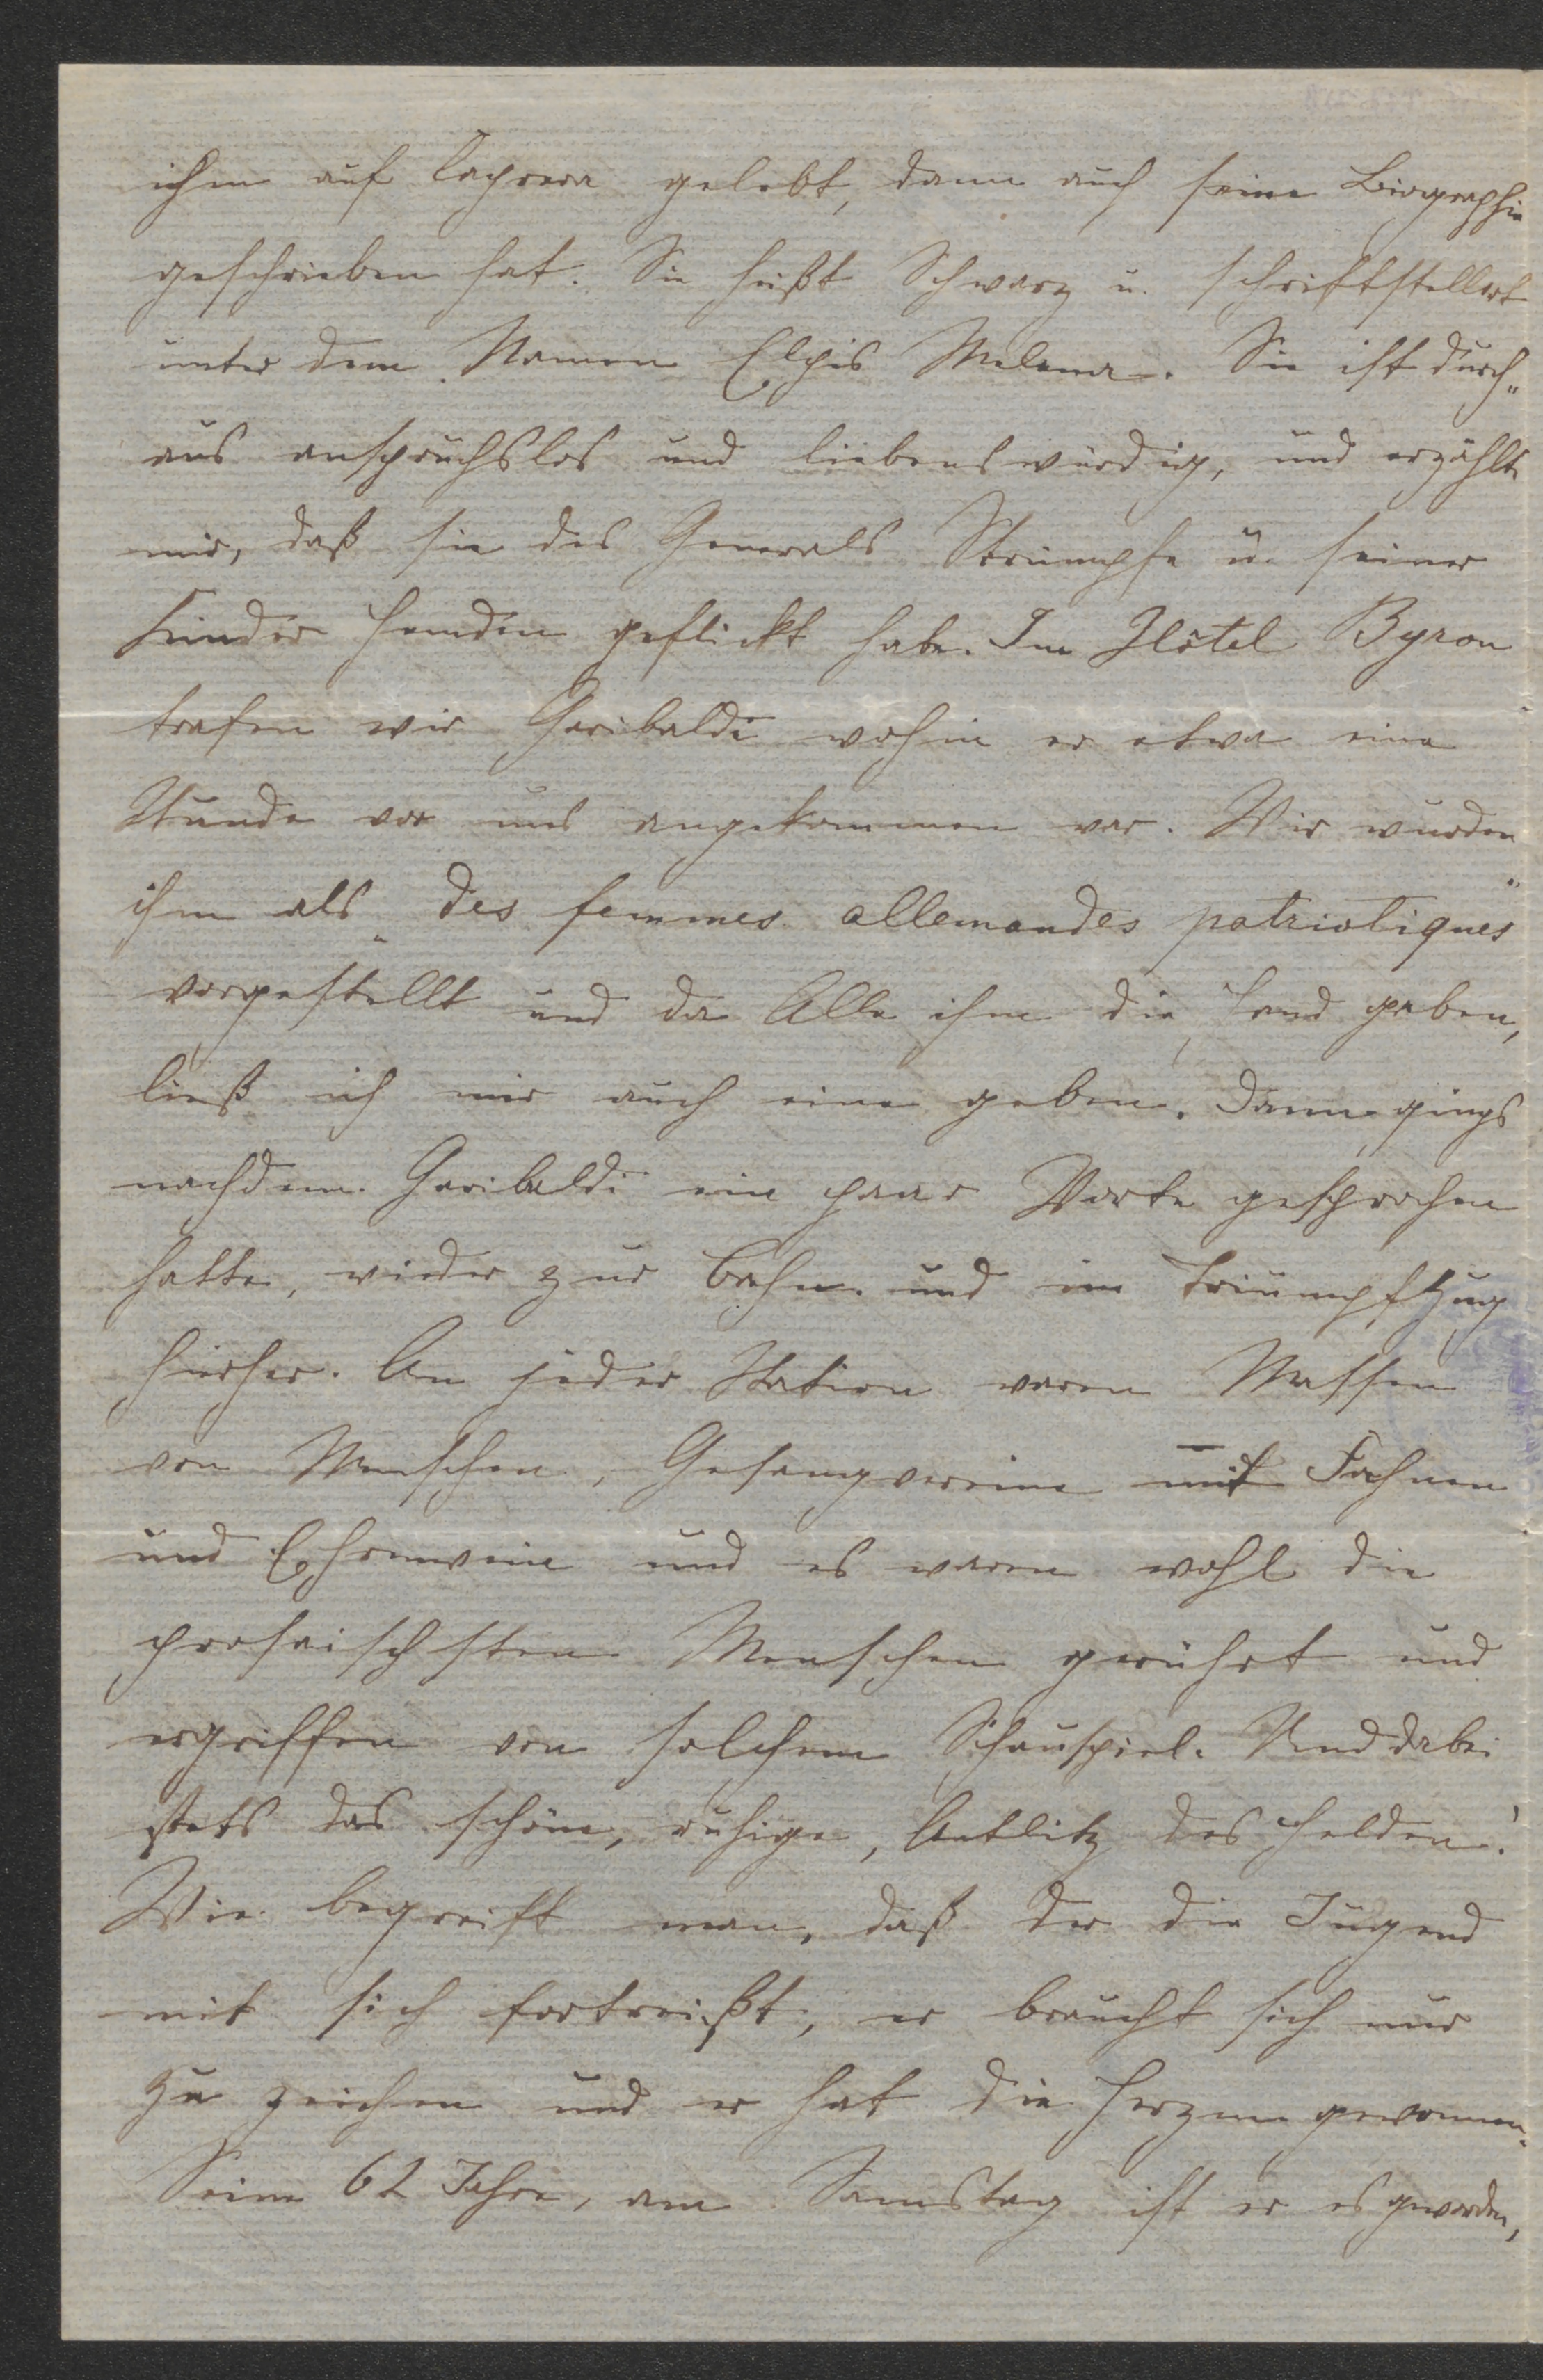 ihm auf Caprera gelebt, dann auch seine Biographie
geschrieben hat. Sie heißt Schwarz u. schriftstellert
unter dem Namen Elpis Melena. Sie ist durch„
aus anspruchslos und liebenswürdig, und erzählte
mir, daß sie des Generals Strümpfe u. seiner
Kinder Hemden geflickt habe. Im Hôtel Byron
trafen wir Garibaldi wohin er etwa eine
Stunde vor uns angekommen war. Wir wurden
ihm als „des femmes allemandes patriotiques“
vorgestellt und da Alle ihm die Hand gaben,
ließ ich mir auch eine geben. Dann gings
nachdem Garibaldi ein paar Worte gesprochen
hatte, wieder zur Bahn und im Triumpfzug
hierher. An jeder Station waren Massen
von Menschen, Gesangvereine mit Fahnen
und Ehrenwein und es waren wohl die
prosaischsten Menschen gerührt und
ergriffen von solchem Schauspiel. Und dabei
stets das schöne, ruhige, Antlitz des Helden!
Wie begreift man, daß der die Jugend
mit sich fortreißt, er braucht sich nur
zu zeichen und er hat die Herzen gewonnen.
Seine 62 Jahre, am Samstag ist er es geworden,